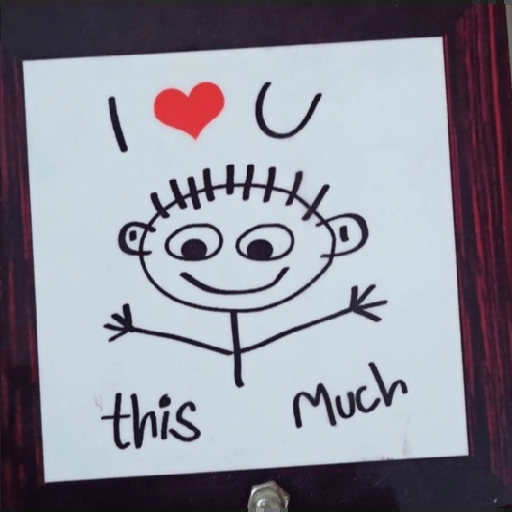 I ❤ U
this Much